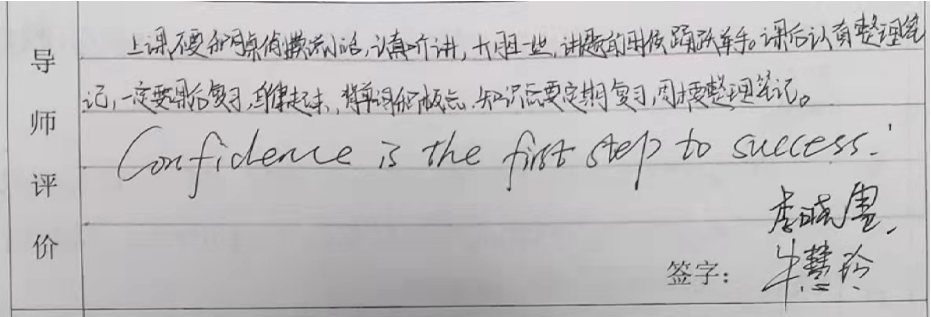 导师评价
上课不要和同桌偷摸说小话,认真听讲,大胆一些,讲题的时候踊跃举手。课后认真整理笔
记,一定要课后复习,自律起来,背单词和板书,知识点要定期复习,周末要整理笔记。
Confidence is the first step to success!
李晓
签字: 牛慧玲